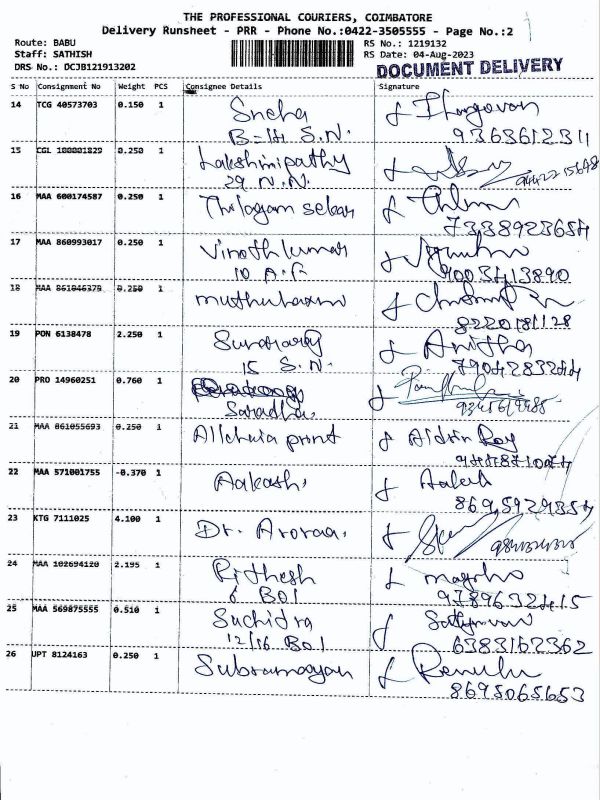 THE PROFESSIONAL COURIERS, COIMBATORE
Delivery Runsheet - PRR - Phone No.:0422-3505555 - Page No.:2
Route: BABU
Staff: SATHISH
DRS No.: DCJB121913202
RS No.: 1219132
RS Date: 04-Aug-2023
DOCUMENT DELIVERY
S No Consignment No Weight PCS Consignee Details Signature
14 TCG 40573703 0.150 1 Sneha
B-14 S.N. 9363612311
15 CGL 100001829 0.250 1 Lakshmipathy
29 N.N.
16 MAA 600174587 0.250 1 Thilagam sekar
7338923654
17 MAA 860993017 0.250 1 Vinothkumar
10 A.F. 9003413890
18 MAA 861046379 0.250 1
8220181128
19 PON 6138478 2.250 1 Sundararaj Anitha
15 S.N. 7904283244
20 PRO 14960251 0.760 1
Saradha.
21 MAA 861055693 0.250 1 print Aldrin Roy
22 MAA 571001755 -0.370 1 Aakash. Aakash
8695929354
23 KTG 7111025 4.100 1 Dr. Aroraa.
24 MAA 102694120 2.195 1 Rithesh
6 BOI 9789632415
25 MAA 569875555 0.510 1 Suchidra
12/16 BOI 6383162362
26 UPT 8124163 0.250 1 Subramayan Renuka
8695065653